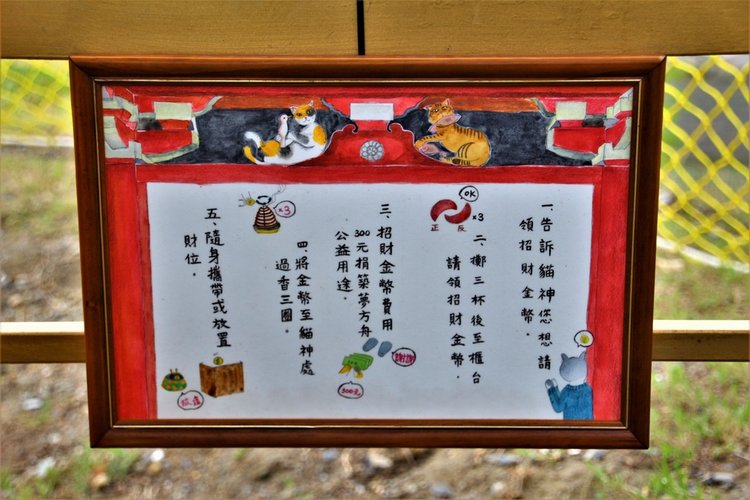 一、告訴貓神您想請
領招財金幣.
OK
x3
正 反
二、擲三杯後至櫃台
請領招財金幣.
三、招財金幣費用
300元捐築夢方舟
公益用途.
謝謝
300元
x3
四、將金幣至貓神處
過香三圈.
五、隨身攜帶或放置
財位.